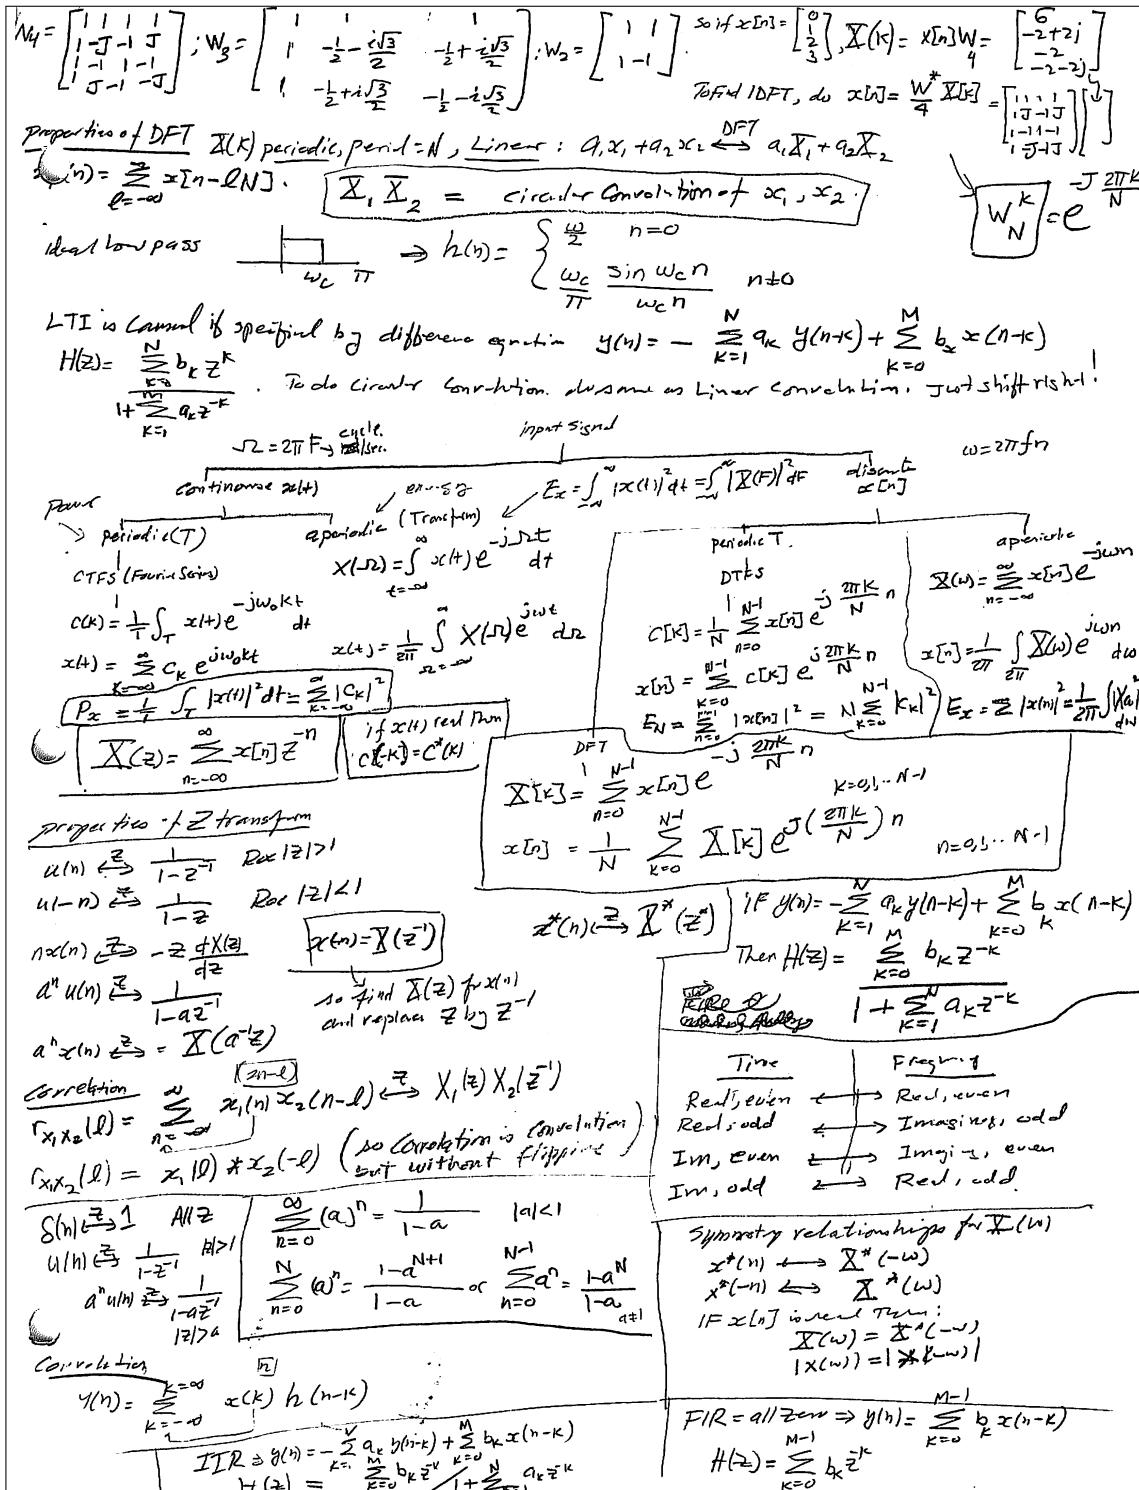 W4 = [1 1 1 1; 1 -J -1 J; 1 -1 1 -1; 1 J -1 -J] ; W3 = [1 1 1; 1 -1/2 - i√3/2 -1/2 + i√3/2; 1 -1/2 + i√3/2 -1/2 - i√3/2] ; W2 = [1 1; 1 -1].
so if x[n] = [0; 1; 2; 3], X(k) = x[n] W4 = [6; -2+2j; -2; -2-2j]
To Find IDFT, do x[n] = W*/4 X[k] = [1 1 1 1; 1 J -1 -J; 1 -1 1 -1; 1 -J -1 J] [ ]
properties of DFT X(k) periodic, period = N, Linear: a1 x1 + a2 x2 <-DFT-> a1 X1 + a2 X2
(n) = Σ_{l=-∞}^{∞} x[n-lN].
X1 X2 = circular Convolution of x1, x2.
W_N^k = e^{-J 2πk/N}
ideal Low pass ωc π ⇒ h(n) = { ω/2 n=0
ωc/π sin ωc n / ωc n n≠0
LTI is Causal if specified by difference equation y(n) = - Σ_{k=1}^{N} ak y(n-k) + Σ_{k=0}^{M} bk x(n-k)
H(z) = Σ bk z^k / 1 + Σ_{k=1}^{M} ak z^-k . To do circular Convolution. do same as Linear convolution. Just shift right!
input signal
Ω = 2π F → cycle/sec.
ω = 2π f n
continuous x(t)
discrete x[n]
energy
Ex = ∫_{-∞}^{∞} |x(t)|² dt = ∫_{-∞}^{∞} |X(F)|² dF
power
periodic (T)
aperiodic (Transform)
CTFS (Fourier Series)
X(Ω) = ∫_{t=-∞}^{∞} x(t) e^{-jΩt} dt
c(k) = 1/T ∫_T x(t) e^{-jω0kt} dt
x(t) = 1/2π ∫_{Ω=-∞}^{∞} X(Ω) e^{jωt} dΩ
x(t) = Σ_{k=-∞}^{∞} ck e^{jω0kt}
Px = 1/T ∫_T |x(t)|² dt = Σ_{k=-∞}^{∞} |ck|²
periodic T.
DTFS
c[k] = 1/N Σ_{n=0}^{N-1} x[n] e^{-j 2πk/N n}
x[n] = Σ_{k=0}^{N-1} c[k] e^{j 2πk/N n}
EN = Σ_{n=0}^{N-1} |x[n]|² = N Σ_{k=0}^{N-1} |ck|²
aperiodic
X(ω) = Σ_{n=-∞}^{∞} x[n] e^{-jωn}
x[n] = 1/2π ∫_{2π} X(ω) e^{jωn} dω
Ex = Σ |x(n)|² = 1/2π ∫ |X(ω)|² dω
X(z) = Σ_{n=-∞}^{∞} x[n] z^-n
if x(t) real Then
c(-k) = c*(k)
DFT
X[k] = Σ_{n=0}^{N-1} x[n] e^{-j 2πk/N n} k=0,1,..N-1
x[n] = 1/N Σ_{k=0}^{N-1} X[k] e^{J(2πk/N) n} n=0,1,..N-1
properties of Z transform
u(n) <-z-> 1/(1-z^-1) Roc |z|>1
u(-n) <-z-> 1/(1-z) Roc |z|<1
n x(n) <-z-> -z dX(z)/dz
x(-n) = X(z^-1)
so find X(z) for x(n)
and replace z by z^-1
a^n u(n) <-z-> 1/(1-az^-1)
a^n x(n) <-z-> = X(a^-1 z)
x*(n) <-z-> X*(z*)
IF y(n) = - Σ_{k=1}^{N} ak y(n-k) + Σ_{k=0}^{M} bk x(n-k)
Then H(z) = Σ_{k=0}^{M} bk z^-k / 1 + Σ_{k=1}^{N} ak z^-k
Correlation
r_{x1x2}(l) = Σ_{n=-∞}^{∞} x1(n) x2(n-l) <-z-> X1(z) X2(z^-1)
r_{x1x2}(l) = x1(l) * x2(-l) (so Correlation is Convolution but without flipping)
Time Frequency
Real, even ↔ Real, even
Real, odd ↔ Imaginary, odd
Im, even ↔ Imaginary, even
Im, odd ↔ Real, odd.
δ(n) <-z-> 1 All z
u(n) <-z-> 1/(1-z^-1) |z|>1
a^n u(n) <-z-> 1/(1-az^-1)
|z|>a
Σ_{n=0}^{∞} (a)^n = 1/(1-a) |a|<1
Σ_{n=0}^{N} (a)^n = (1-a^{N+1})/(1-a) or Σ_{n=0}^{N-1} a^n = (1-a^N)/(1-a) a≠1
Symmetry relationships for X(ω)
x*(n) ↔ X*(-ω)
x*(-n) ↔ X*(ω)
IF x[n] is real Then:
X(ω) = X*(-ω)
|X(ω)| = |X(-ω)|
Convolution
y(n) = Σ_{k=-∞}^{k=∞} x(k) h(n-k)
IIR ⇒ y(n) = - Σ_{k=1}^{N} ak y(n-k) + Σ_{k=0}^{M} bk x(n-k)
H(z) = Σ_{k=0}^{M} bk z^-k / 1 + Σ^{N} ak z^-k
FIR = all zero ⇒ y(n) = Σ_{k=0}^{M-1} bk x(n-k)
H(z) = Σ_{k=0}^{M-1} bk z^-k